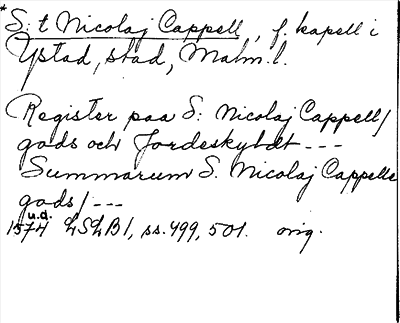 * S:t Nicolaj Cappell, f. kapell i
Ystad, stad, Malm.l.
Register paa S: Nicolaj Cappell/
gods och Jordeskyldt ---
Summarum S. Nicolaj Cappells
gods/---
u.d.
1574 LSLB1, ss. 499, 501. orig.